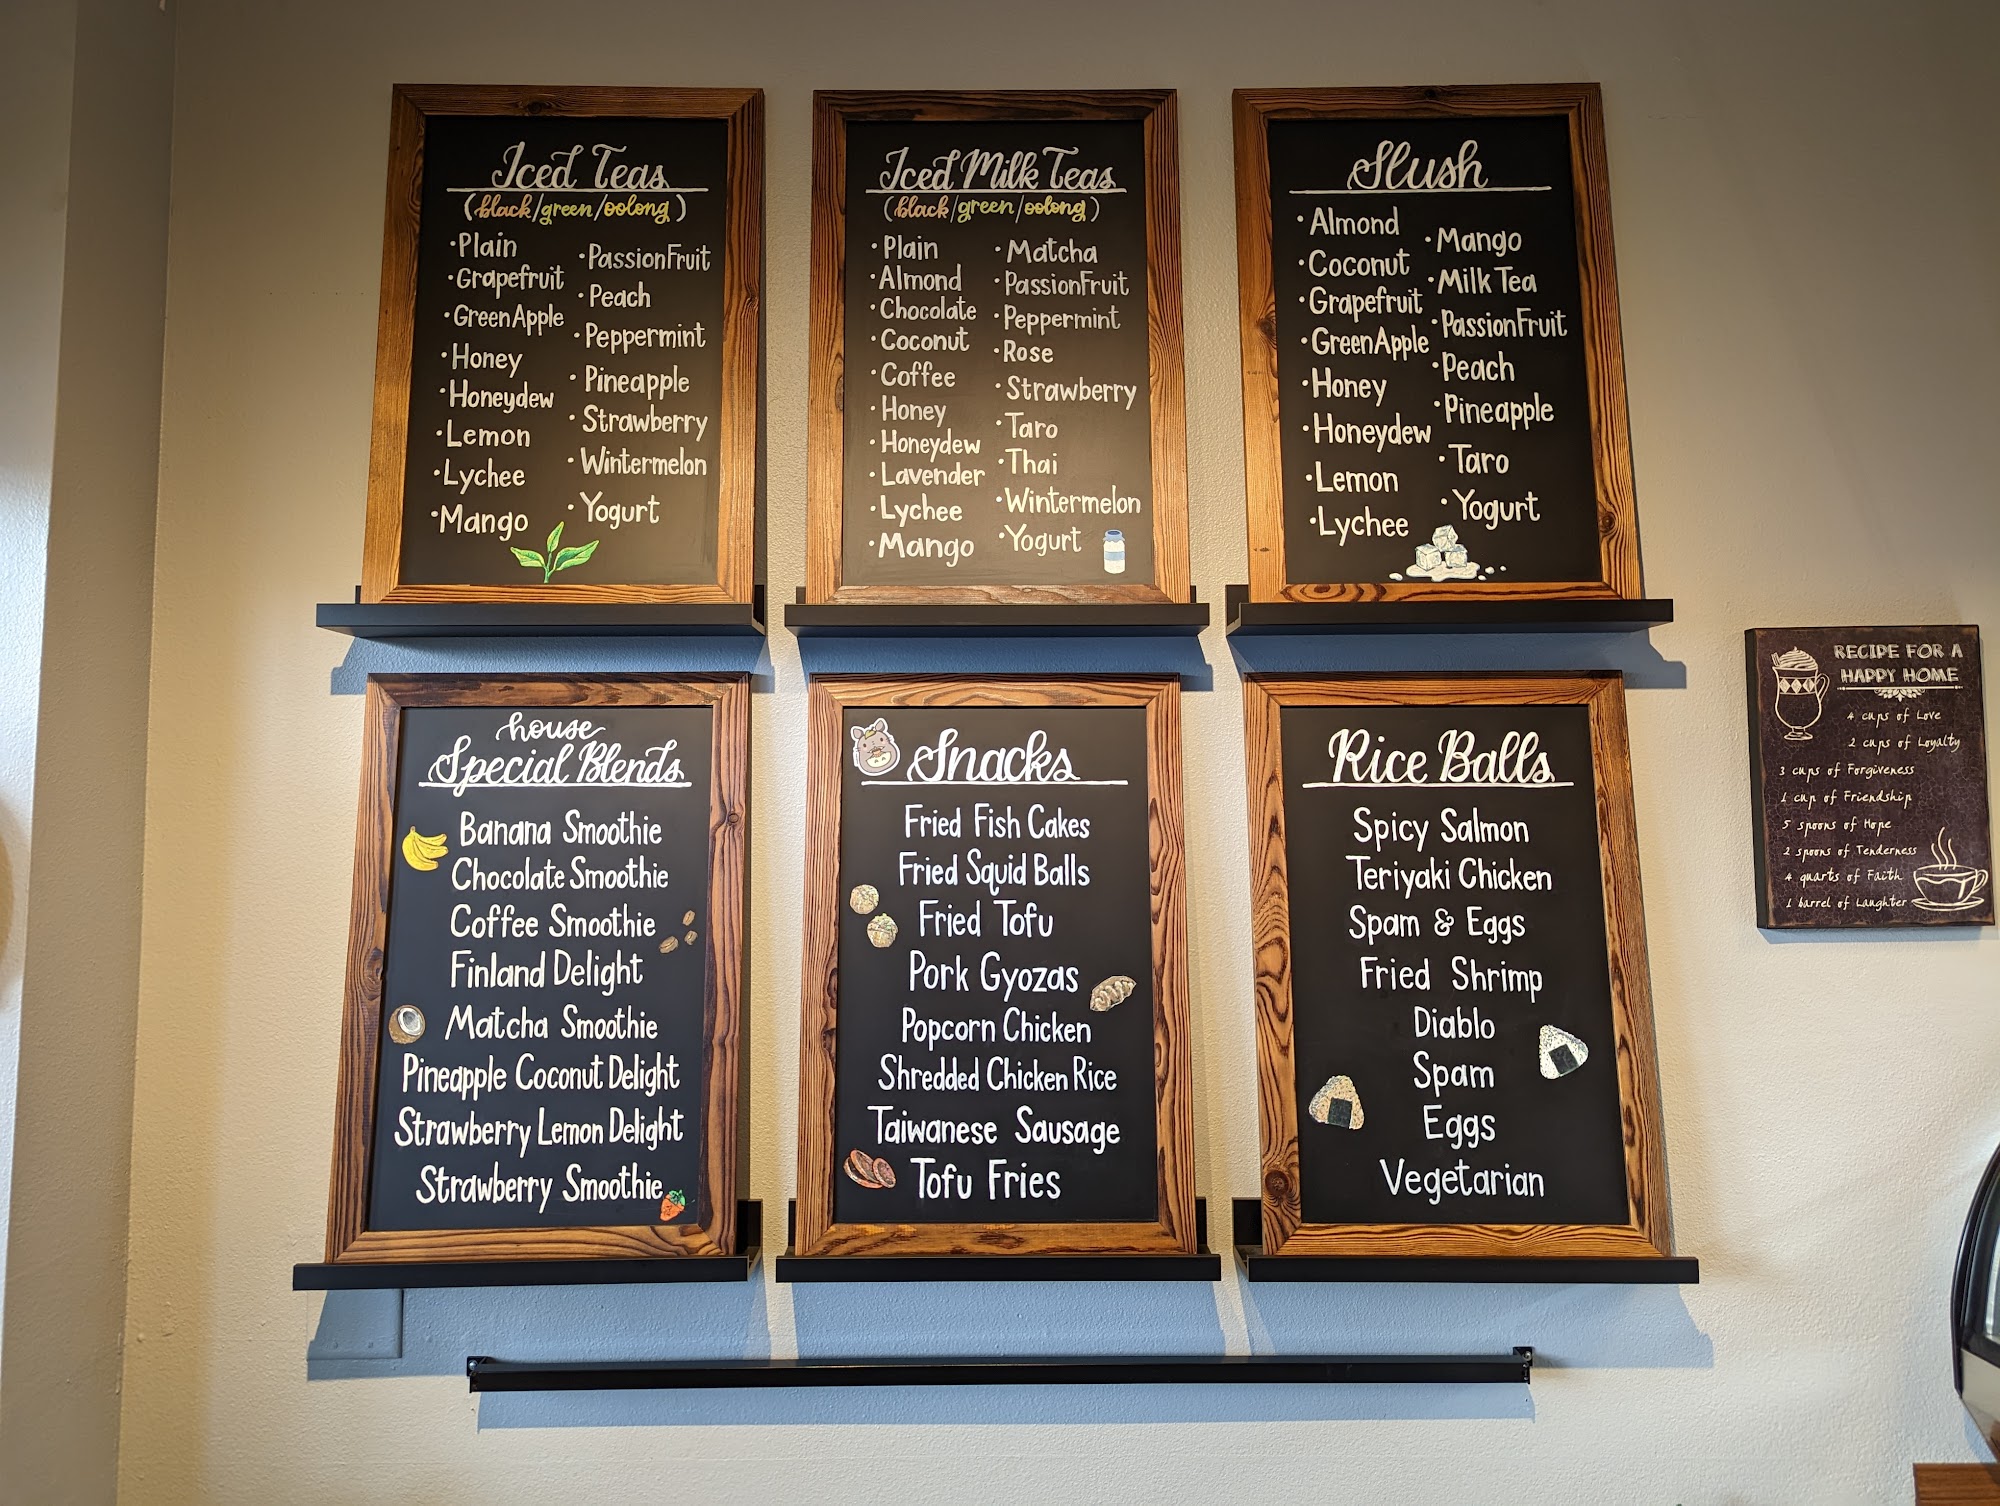 Iced Teas
(black/green/oolong)
·Plain
·Grapefruit
·Green Apple
·Honey
·Honeydew
·Lemon
·Lychee
·Mango
·Passion Fruit
·Peach
·Peppermint
·Pineapple
·Strawberry
·Wintermelon
·Yogurt
Iced Milk Teas
(black/green/oolong)
·Plain
·Almond
·Chocolate
·Coconut
·Coffee
·Honey
·Honeydew
·Lavender
·Lychee
·Mango
·Matcha
·Passion Fruit
·Peppermint
·Rose
·Strawberry
·Taro
·Thai
·Wintermelon
·Yogurt
Slush
·Almond
·Coconut
·Grapefruit
·Green Apple
·Honey
·Honeydew
·Lemon
·Lychee
·Mango
·Milk Tea
·Passion Fruit
·Peach
·Pineapple
·Taro
·Yogurt
house
Special Blends
Banana Smoothie
Chocolate Smoothie
Coffee Smoothie
Finland Delight
Matcha Smoothie
Pineapple Coconut Delight
Strawberry Lemon Delight
Strawberry Smoothie
Snacks
Fried Fish Cakes
Fried Squid Balls
Fried Tofu
Pork Gyozas
Popcorn Chicken
Shredded Chicken Rice
Taiwanese Sausage
Tofu Fries
Rice Balls
Spicy Salmon
Teriyaki Chicken
Spam & Eggs
Fried Shrimp
Diablo
Spam
Eggs
Vegetarian
RECIPE FOR A
HAPPY HOME
4 cups of Love
2 cups of Loyalty
3 cups of Forgiveness
1 cup of Friendship
5 spoons of Hope
2 spoons of Tenderness
4 quarts of Faith
1 barrel of Laughter